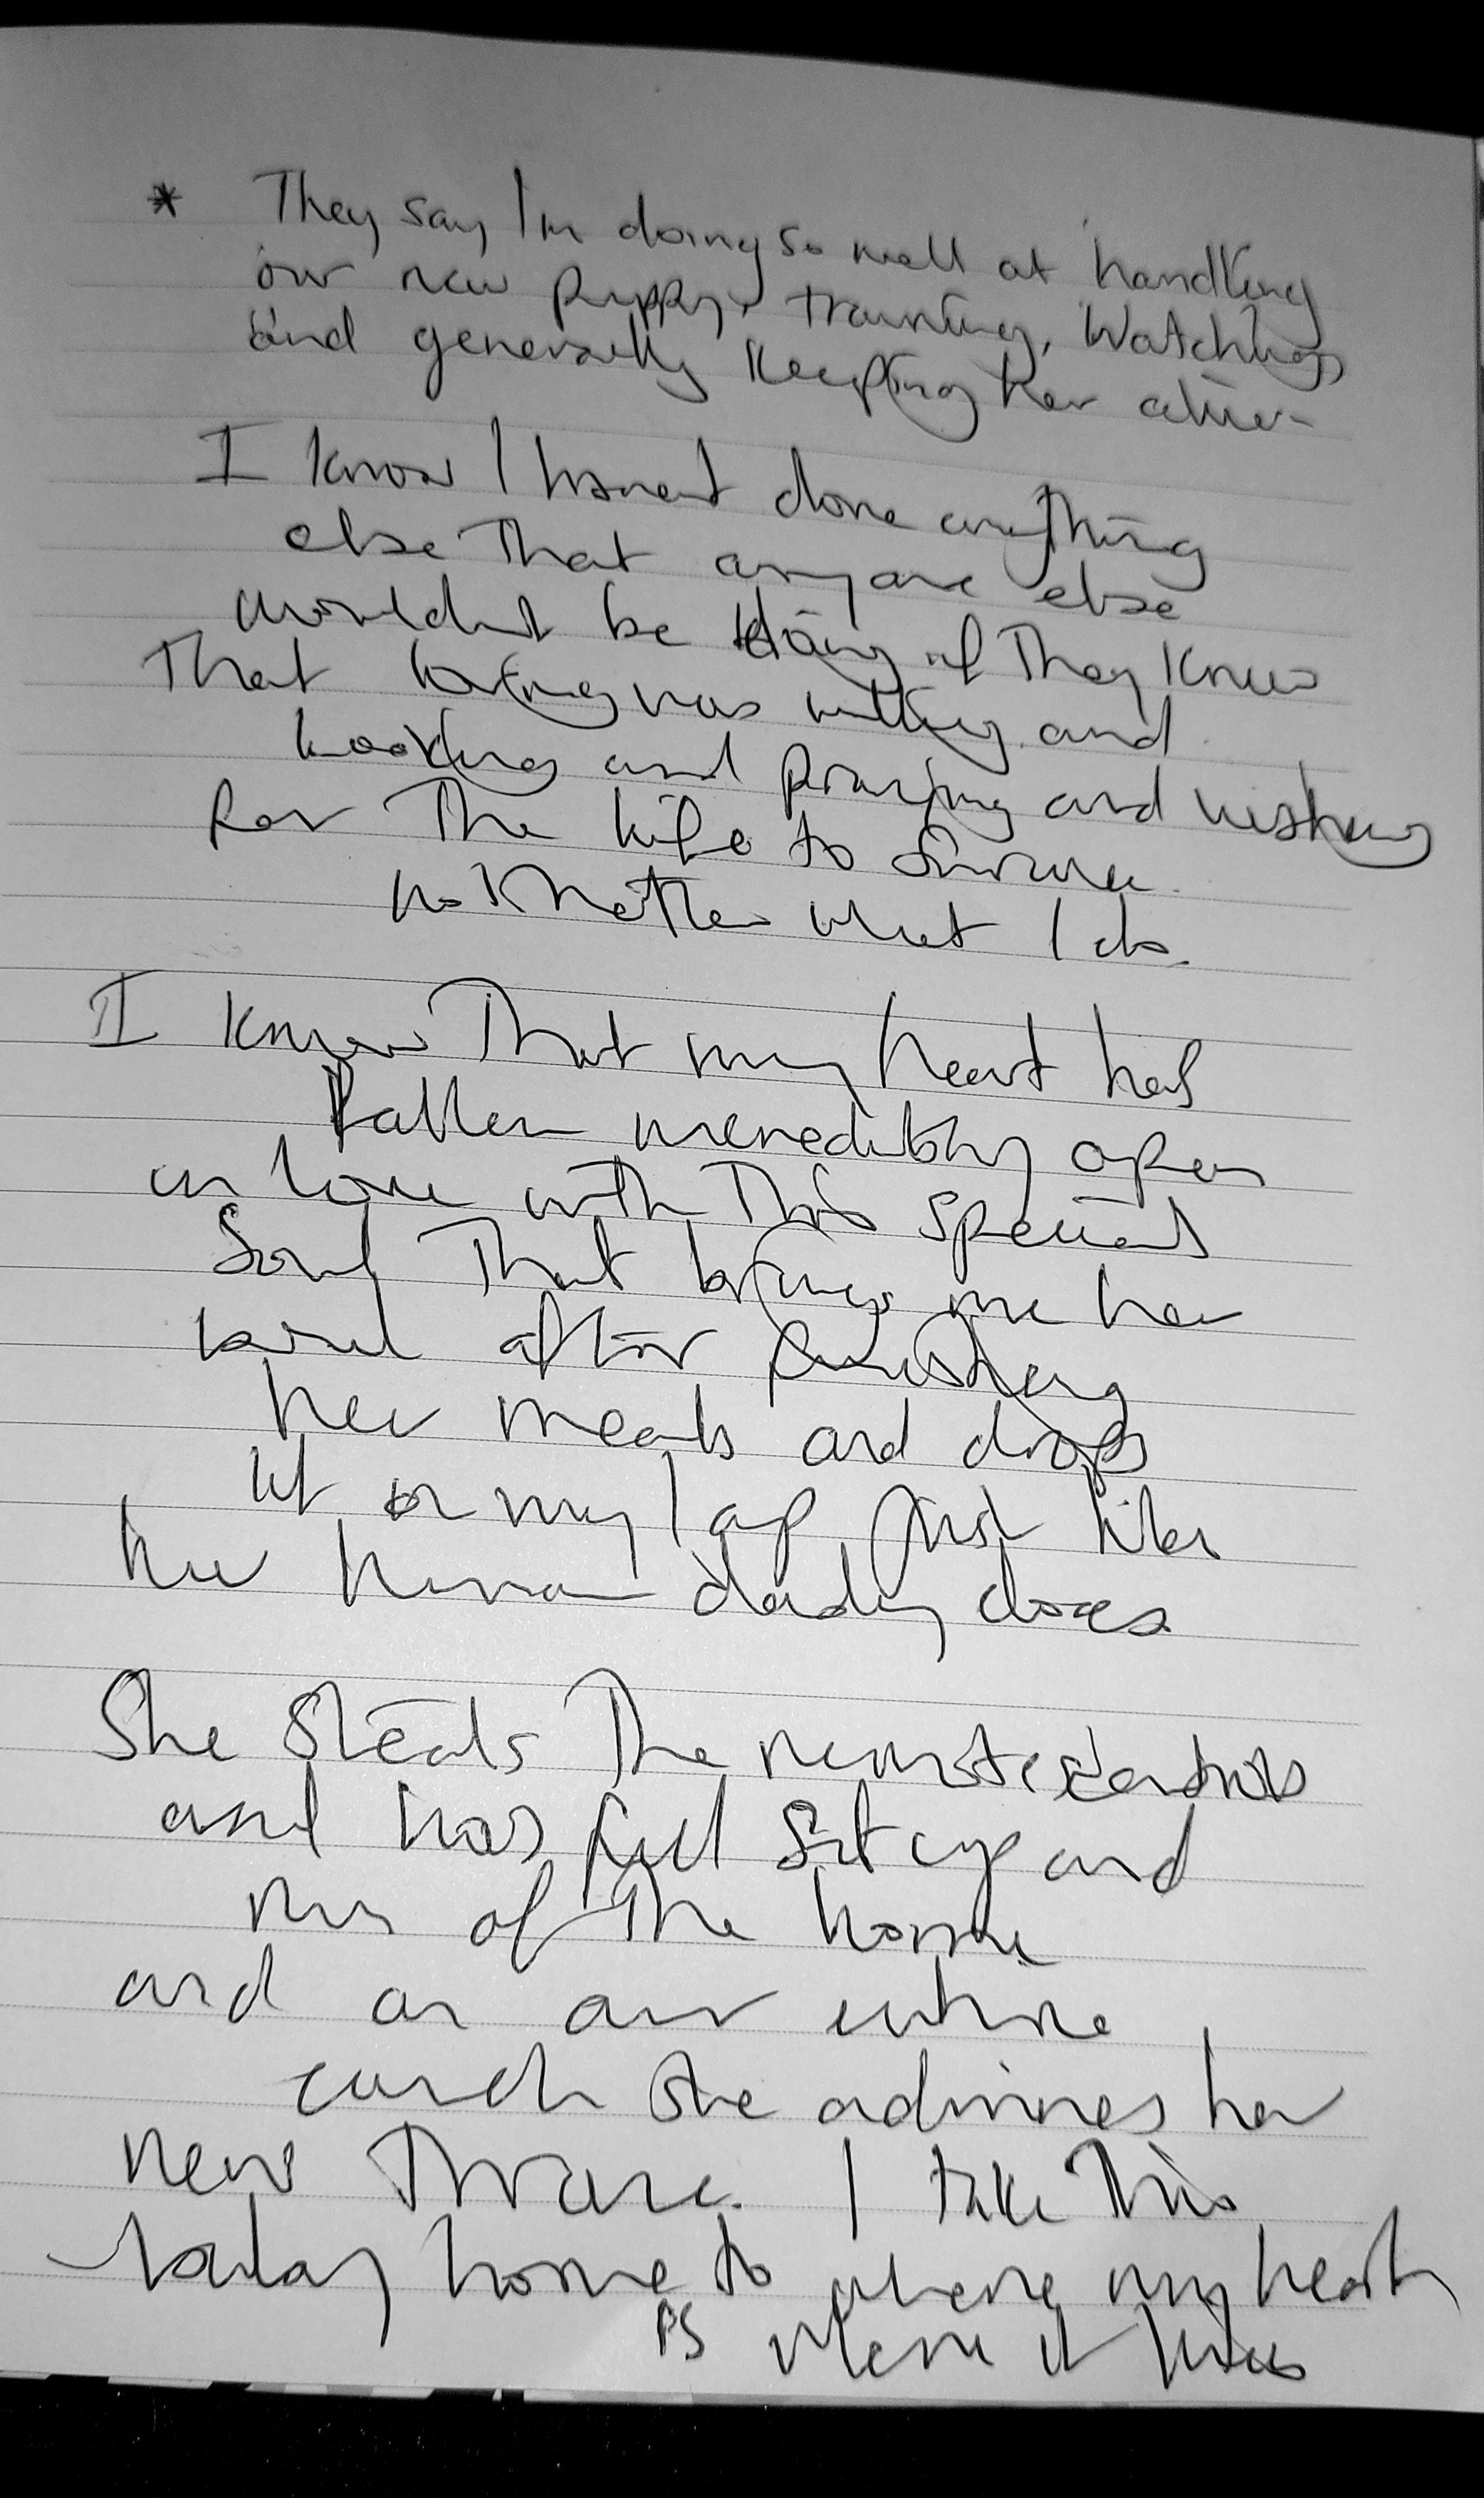 * They say I'm doing so well at handling
our new puppy, training, watching
and generally keeping her alive.
I know I havent done anything
else that anyone else
wouldnt be doing if they knew
that loving was and
looking and praying and wishing
for the life to survive
no matter what I do.
I know that my heart has
fallen incredibly open
in love with this special
soul that brings me her
bowl after finishing
her meals and drops
it on my lap just like
her human daddy does.
She steals the remote controls
and has full sit up and
run of the home
and on our entire
couch she admires her
new throne. I take this
today home to where my heart
PS where it lives